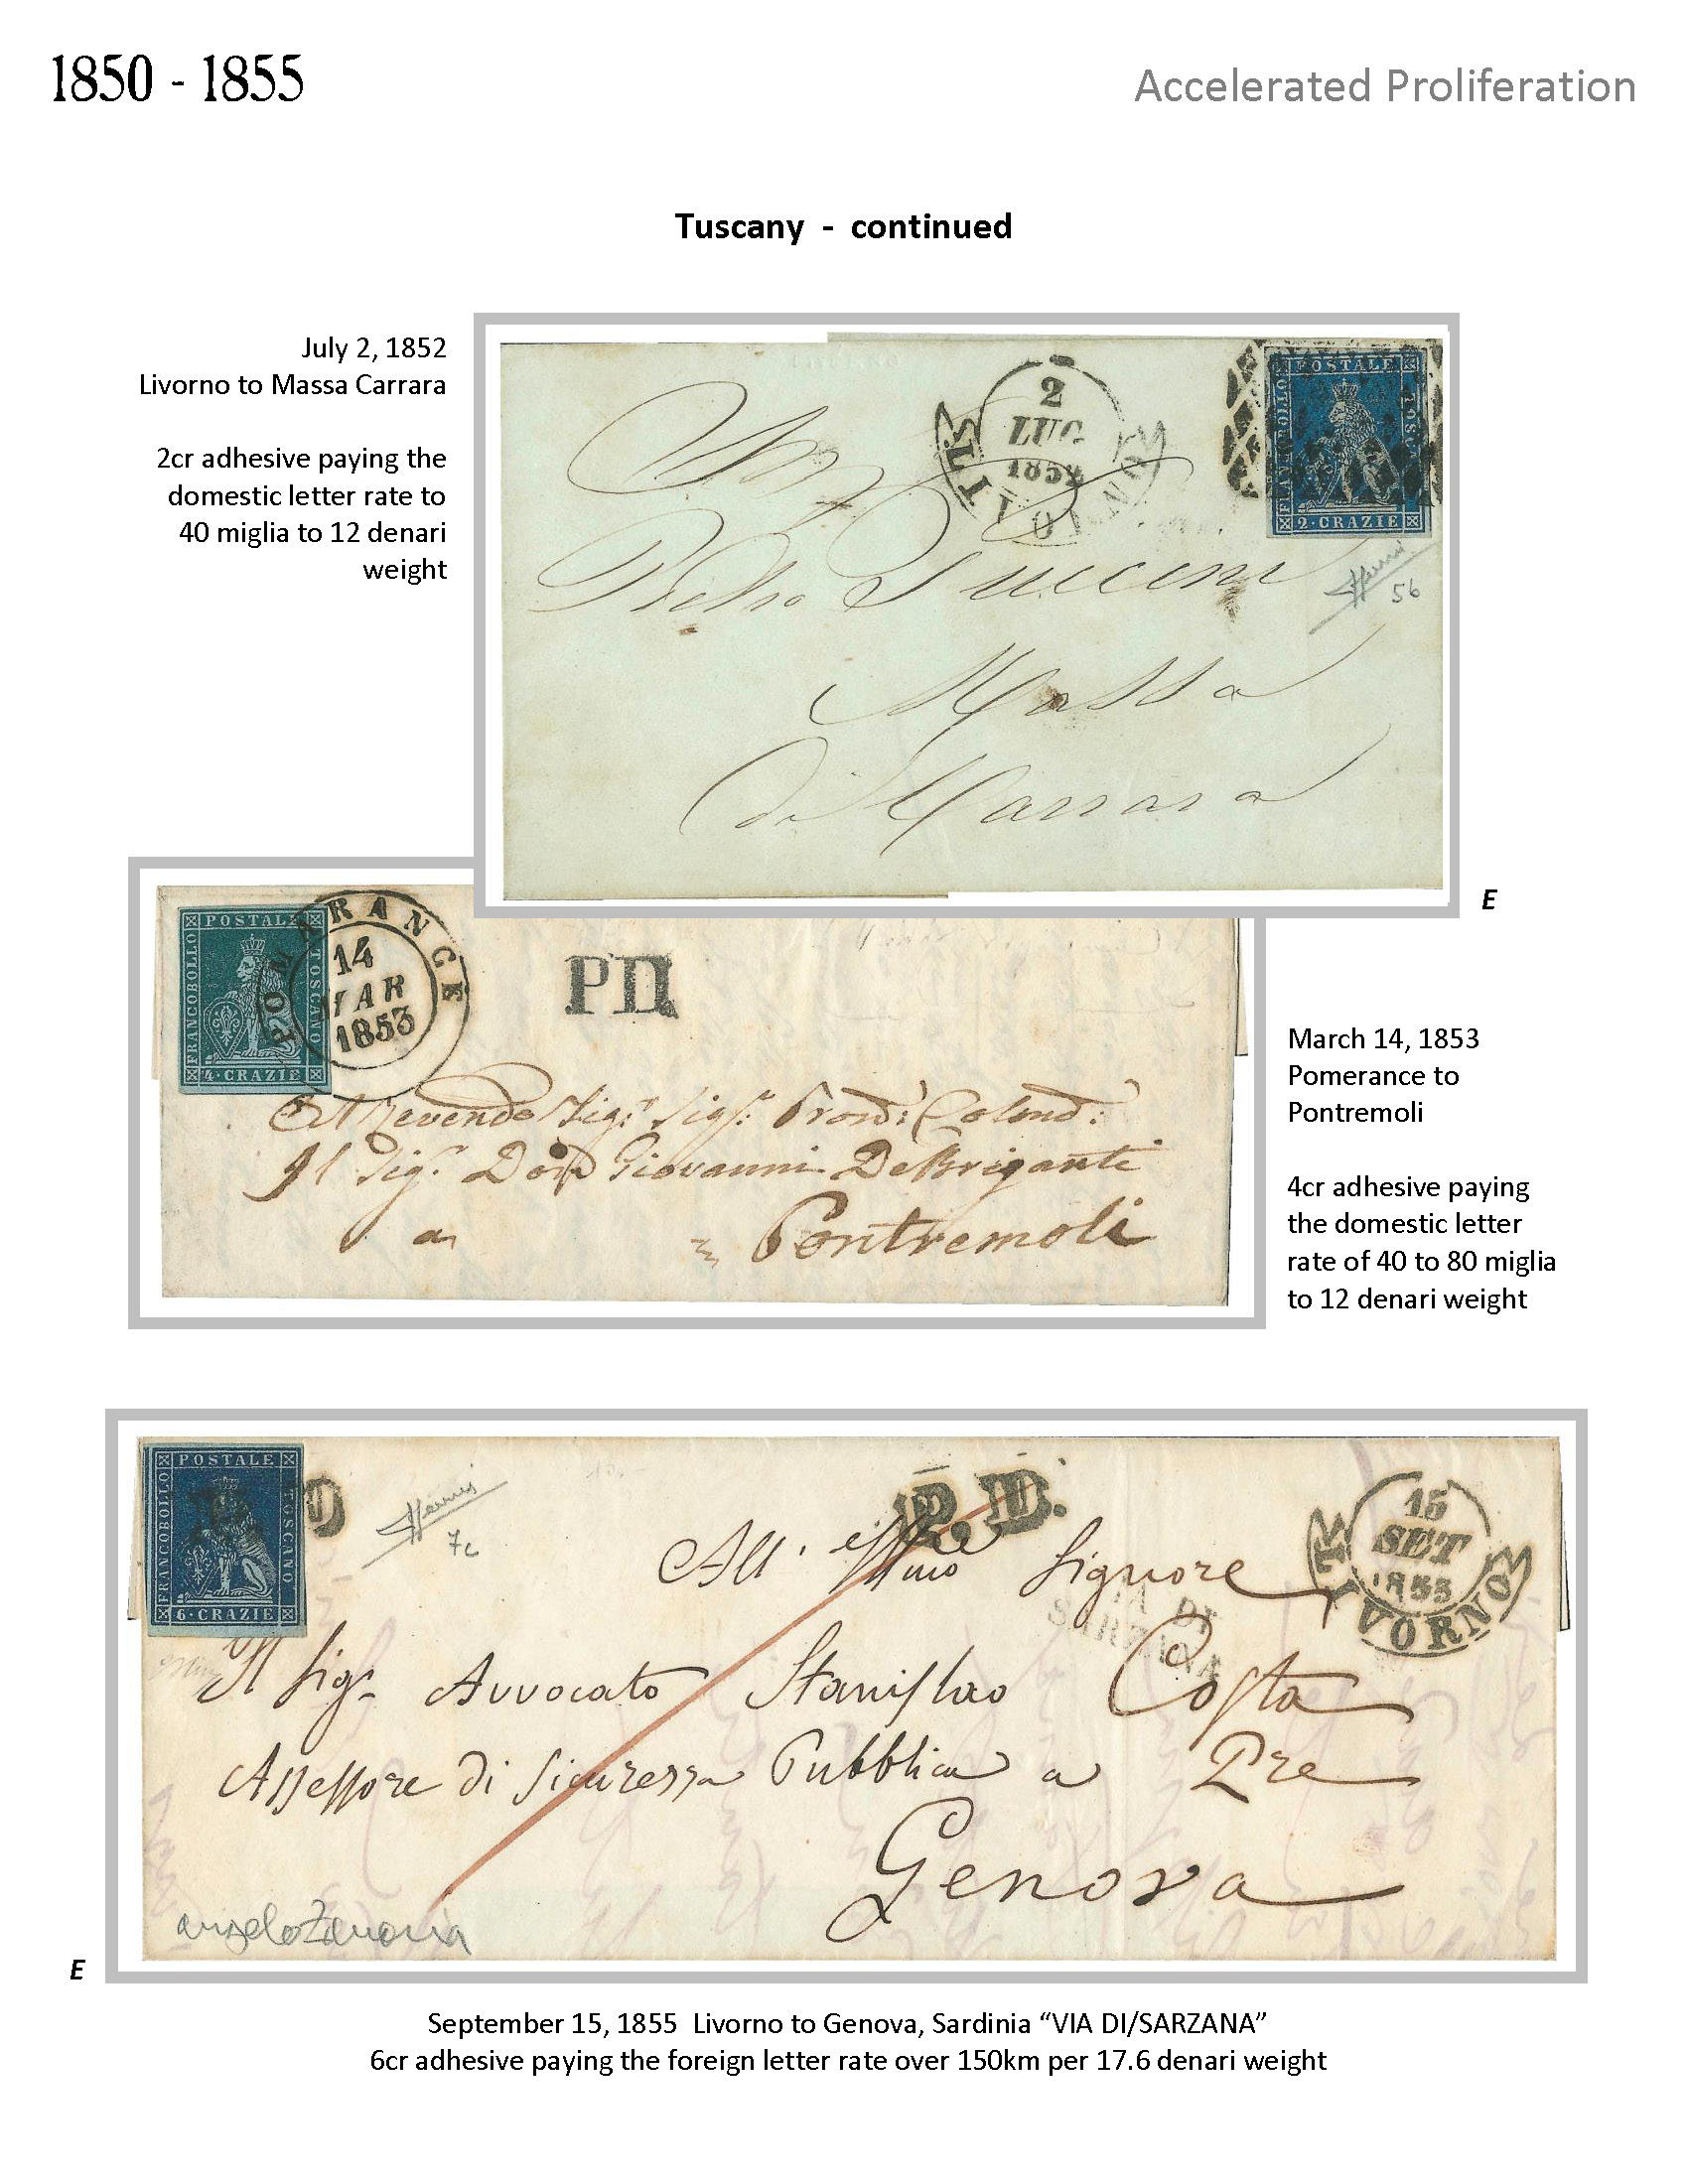 1850 - 1855
Accelerated Proliferation
Tuscany - continued
July 2, 1852
Livorno to Massa Carrara
2cr adhesive paying the
domestic letter rate to
40 miglia to 12 denari
weight
2
LUG
1852
LIVORNO
POSTALE
FRANCOBOLLO
TOSCANO
2·CRAZIE
56
Massa
di Carrara
E
POSTALE
FRANCOBOLLO
TOSCANO
4·CRAZIE
POMARANCE
14
MAR
1853
PD
Il Sigr. Don Giovanni DeBriganti
a Pontremoli
March 14, 1853
Pomerance to
Pontremoli
4cr adhesive paying
the domestic letter
rate of 40 to 80 miglia
to 12 denari weight
POSTALE
FRANCOBOLLO
TOSCANO
6·CRAZIE
P.D.
15
SET
1855
LIVORNO
VIA DI
SARZANA
All' Signore
Il Sigr. Avvocato Stanislao Costa
Assessore di Sicurezza Pubblica a Pre
Genova
E
September 15, 1855 Livorno to Genova, Sardinia “VIA DI/SARZANA”
6cr adhesive paying the foreign letter rate over 150km per 17.6 denari weight